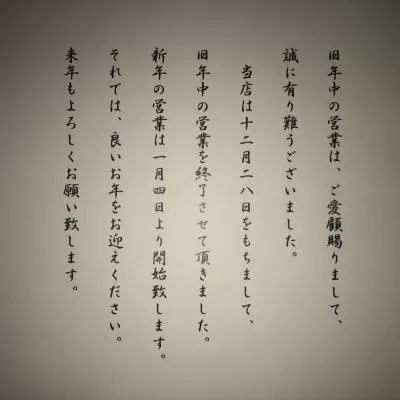 旧年中の営業は、ご愛顧賜りまして、
誠に有り難うございました。
当店は十二月二八日をもちまして、
旧年中の営業を終了させて頂きました。
新年の営業は一月四日より開始致します。
それでは、良いお年をお迎えください。
来年もよろしくお願い致します。